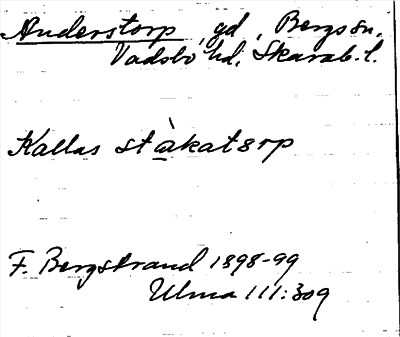 Anderstorp, gd, Bergs sn,
Vadsbo hd, Skarab. l.
Kallas stàkatorp
F. Bergstrand 1898-99
Ulma 111:309